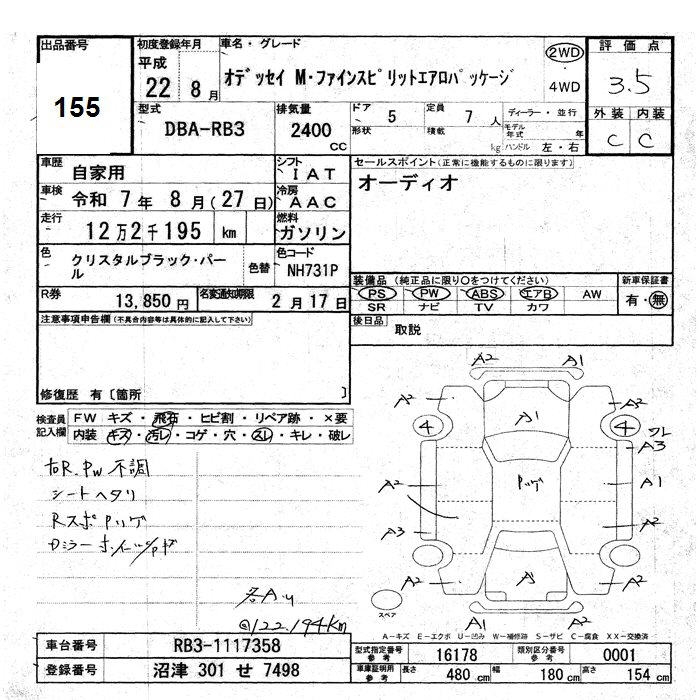 出品番号
155
初度登録年月
平成
22 8 月
車名・グレード
オデッセイ M・ファインスピリットエアロパッケージ
2WD
4WD
評価点
3.5
外装 内装
C C
型式
DBA-RB3
排気量
2400
CC
ドア 5
形状
定員 7 人
積載 kg
ディーラー・並行
モデル年式 年
ハンドル 左・右
車歴
自家用
シフト
IAT
車検
令和 7 年 8 月(27 日)
冷房
AAC
走行
12万2千195 km
燃料
ガソリン
色
クリスタルブラック・パール
色替
色コード
NH731P
R券
13,850 円
名変通知期限
2 月 17 日
セールスポイント(正常に機能するものに限ります)
オーディオ
装備品 (純正品に限り○をつけてください)
PS PW ABS エアB AW
SR ナビ TV カワ
新車保証書
有・無
後日品
取説
注意事項申告欄(不具合内容等は具体的に記入して下さい)
修復歴 有〔箇所 〕
検査員記入欄
FW キズ・飛石・ヒビ割・リペア跡・×要
内装 キズ・汚レ・コゲ・穴・スレ・キレ・破レ
右R.PW不調
シートヘタリ
Rスポ Pツゲ
@122.194Km
A2 A1
A2 A1 A2
4 4
A3
A2 Pツゲ A1
A3 A2
A2 A A2
A1 A2
スペア
A-キズ E-エクボ U-凹み W-補修跡 S-サビ C-腐食 XX-交換済
車台番号 RB3-1117358
登録番号 沼津 301 せ 7498
型式指定番号 参考 16178
類別区分番号 参考 0001
車庫証明用 参考 長さ 480 cm 幅 180 cm 高さ 154 cm